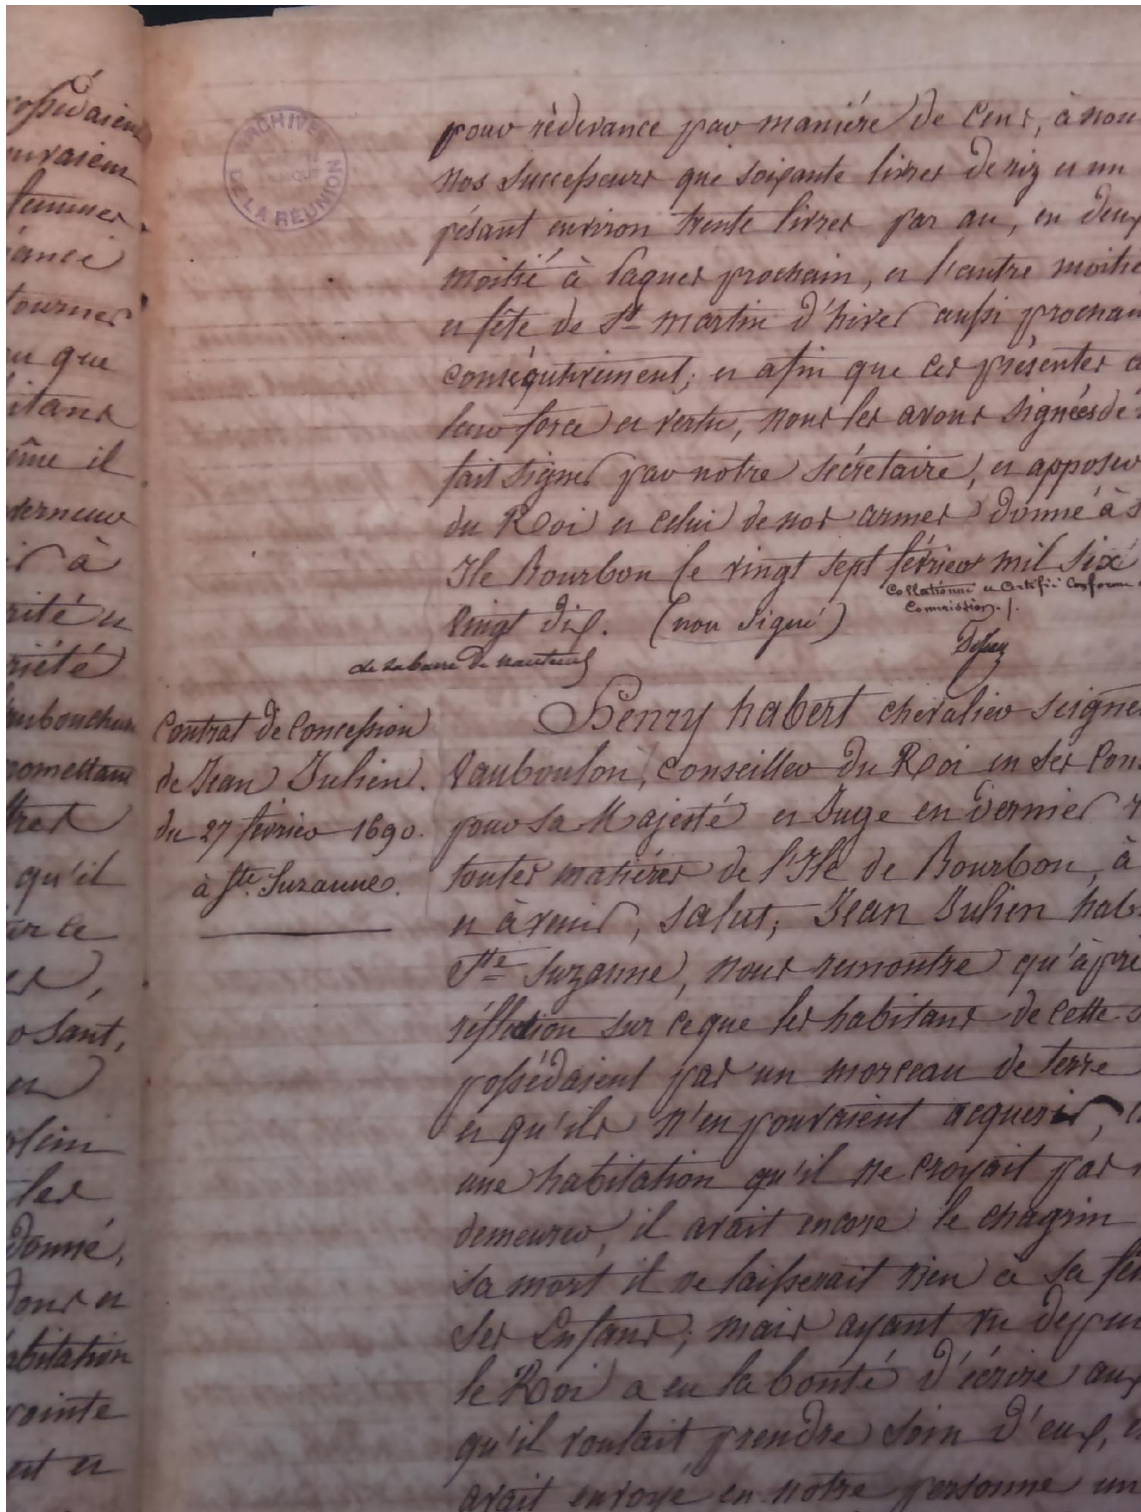 ossédaient
uvaient
femmes
ance
tourner
u que
itans
ême il
verneur
ir à
rité et
riété
embouchure
romettant
tres
qu'il
sur le
er,
o sant,
en
plein
les
donné,
ons et
abitation
rointe
est et
ARCHIVES
DE LA RÉUNION
pour rédevance par maniére de Cens, à nou
nos successeurs que soixante livres de riz et un
pésant environ trente livres par an, en deux
moitié à Paques prochain, et l'autre moitié
et fête de St martin d'hiver aussi prochain
conséqutivement; et afin que ces présentes a
leur force et vertu, nous les avons signées de
fait signer par notre sécretaire, et apposer
du Roi et celui de nos armes donné à s
Ile Bourbon le vingt sept février mil six
Collationné et Certifié Conforme
Commission.
vingt dix. (non signé)
de Labarre de nanteuil
Contrat de Concession
de Jean Julien.
du 27 février 1690.
à Ste. Suzanne.
Henry habert chevalier seigne
Vauboulon, conseiller du Roi en ses Cons
pour sa Majesté et Juge en dernier r
toutes matiéres de l'Ile de Bourbon, à
et à venir, salut; Jean Julien hab
Ste Suzanne, nous remontre qu'àpré
réflection sur ce que les habitans de cette
possédaient pas un morceau de terre
et qu'ils n'en pouvaient acquerir,
une habitation qu'il ne croyait pas
demeurer, il avait encore le chagrin
sa mort il ne laisserait rien à sa fem
ses Enfans; mais ayant vu depui
le Roi a eu la bonté d'écrire aux
qu'il voulait prendre soin d'eux,
avait envoyé en notre personne un